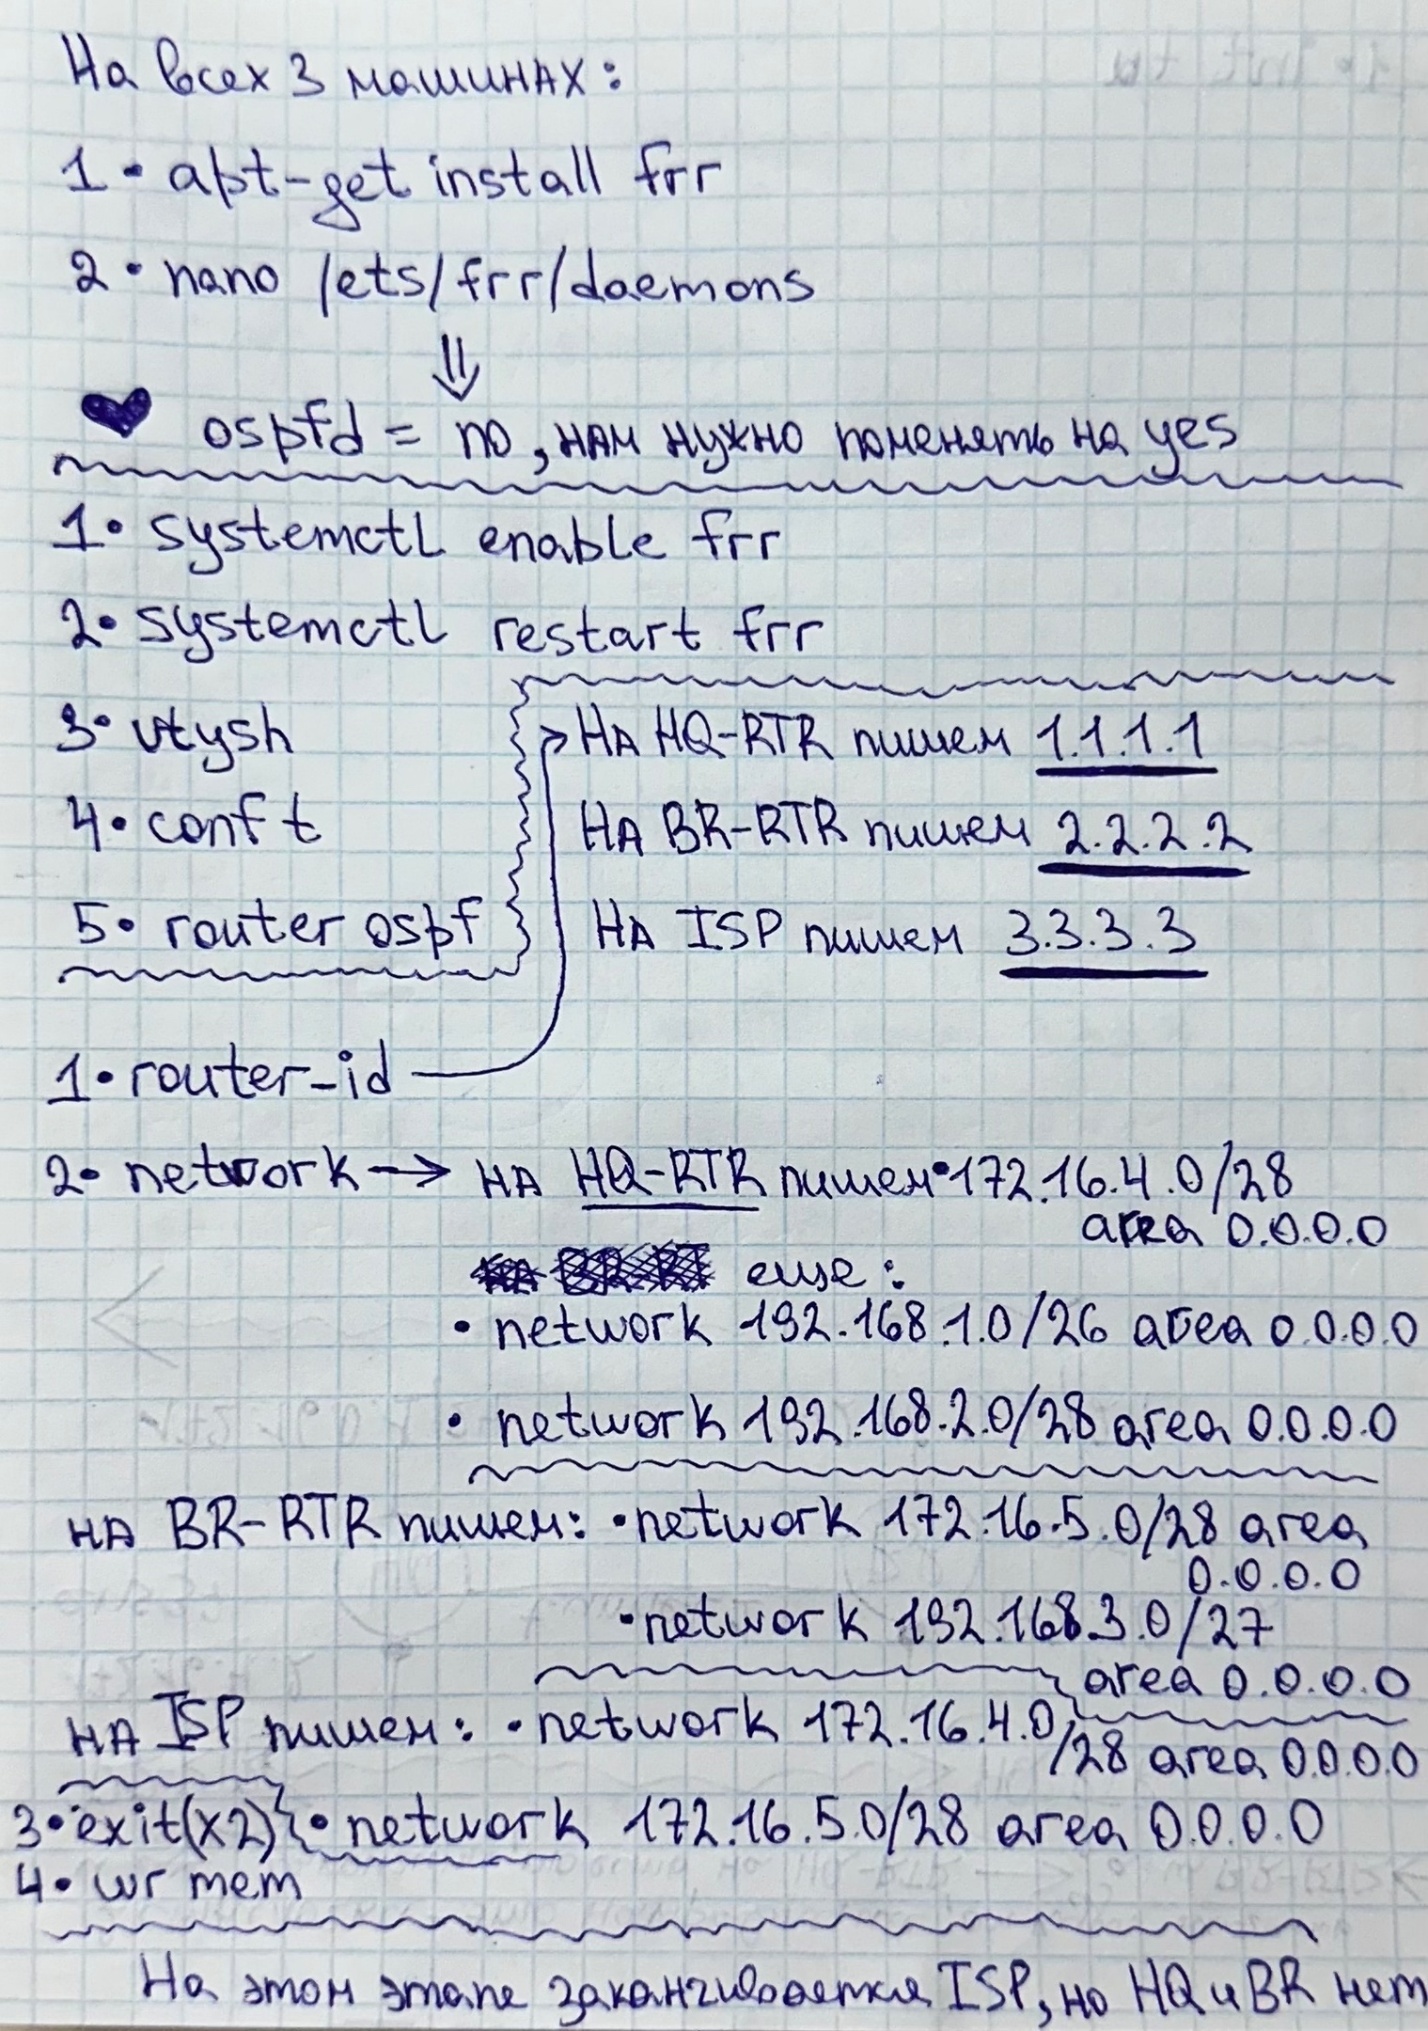 На всех 3 машинах:
1• apt-get install frr
2• nano /ets/frr/daemons
⇓
♥ ospfd = no, нам нужно поменять на yes
1• systemctl enable frr
2• systemctl restart frr
3• vtysh
4• conf t
5• router ospf
1• router-id
На HQ-RTR пишем 1.1.1.1
На BR-RTR пишем 2.2.2.2
На ISP пишем 3.3.3.3
2• network → на HQ-RTR пишем•172.16.4.0/28
area 0.0.0.0
еще:
• network 192.168.1.0/26 area 0.0.0.0
• network 192.168.2.0/28 area 0.0.0.0
на BR-RTR пишем: •network 172.16.5.0/28 area
0.0.0.0
•network 192.168.3.0/27
area 0.0.0.0
на ISP пишем: •network 172.16.4.0
/28 area 0.0.0.0
• network 172.16.5.0/28 area 0.0.0.0
3• exit(x2)
4• wr mem
На этом этапе заканчивается ISP, но HQ и BR нет